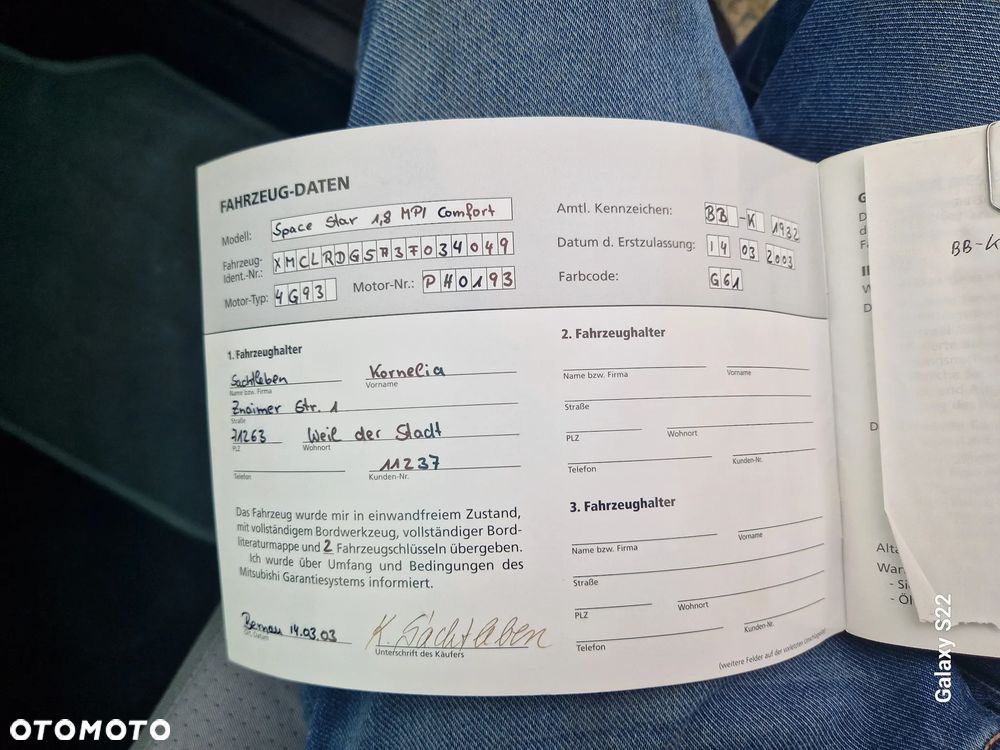 FAHRZEUG-DATEN
Modell: Space Star 1,8 MPI Comfort
Fahrzeug-Ident.-Nr.: XMCLRDG5A37034049
Motor-Typ: 4G93 Motor-Nr.: PH0193
Amtl. Kennzeichen: BB-K 1932
Datum d. Erstzulassung: 14 03 2003
Farbcode: G61
1. Fahrzeughalter
Sachtleben Kornelia
Name bzw. Firma Vorname
Znaimer Str. 1
Straße
71263 Weil der Stadt
PLZ Wohnort
11237
Telefon Kunden-Nr.
Das Fahrzeug wurde mir in einwandfreiem Zustand,
mit vollständigem Bordwerkzeug, vollständiger Bord-
literaturmappe und 2 Fahrzeugschlüsseln übergeben.
Ich wurde über Umfang und Bedingungen des
Mitsubishi Garantiesystems informiert.
14.03.03 K. Sachtleben
Ort, Datum Unterschrift des Käufers
2. Fahrzeughalter
Name bzw. Firma Vorname
Straße
PLZ Wohnort
Telefon Kunden-Nr.
3. Fahrzeughalter
Name bzw. Firma Vorname
Straße
PLZ Wohnort
Telefon Kunden-Nr.
(weitere Felder auf der vorletzten Umschlagseite)
BB-K
Galaxy S22
OTOMOTO